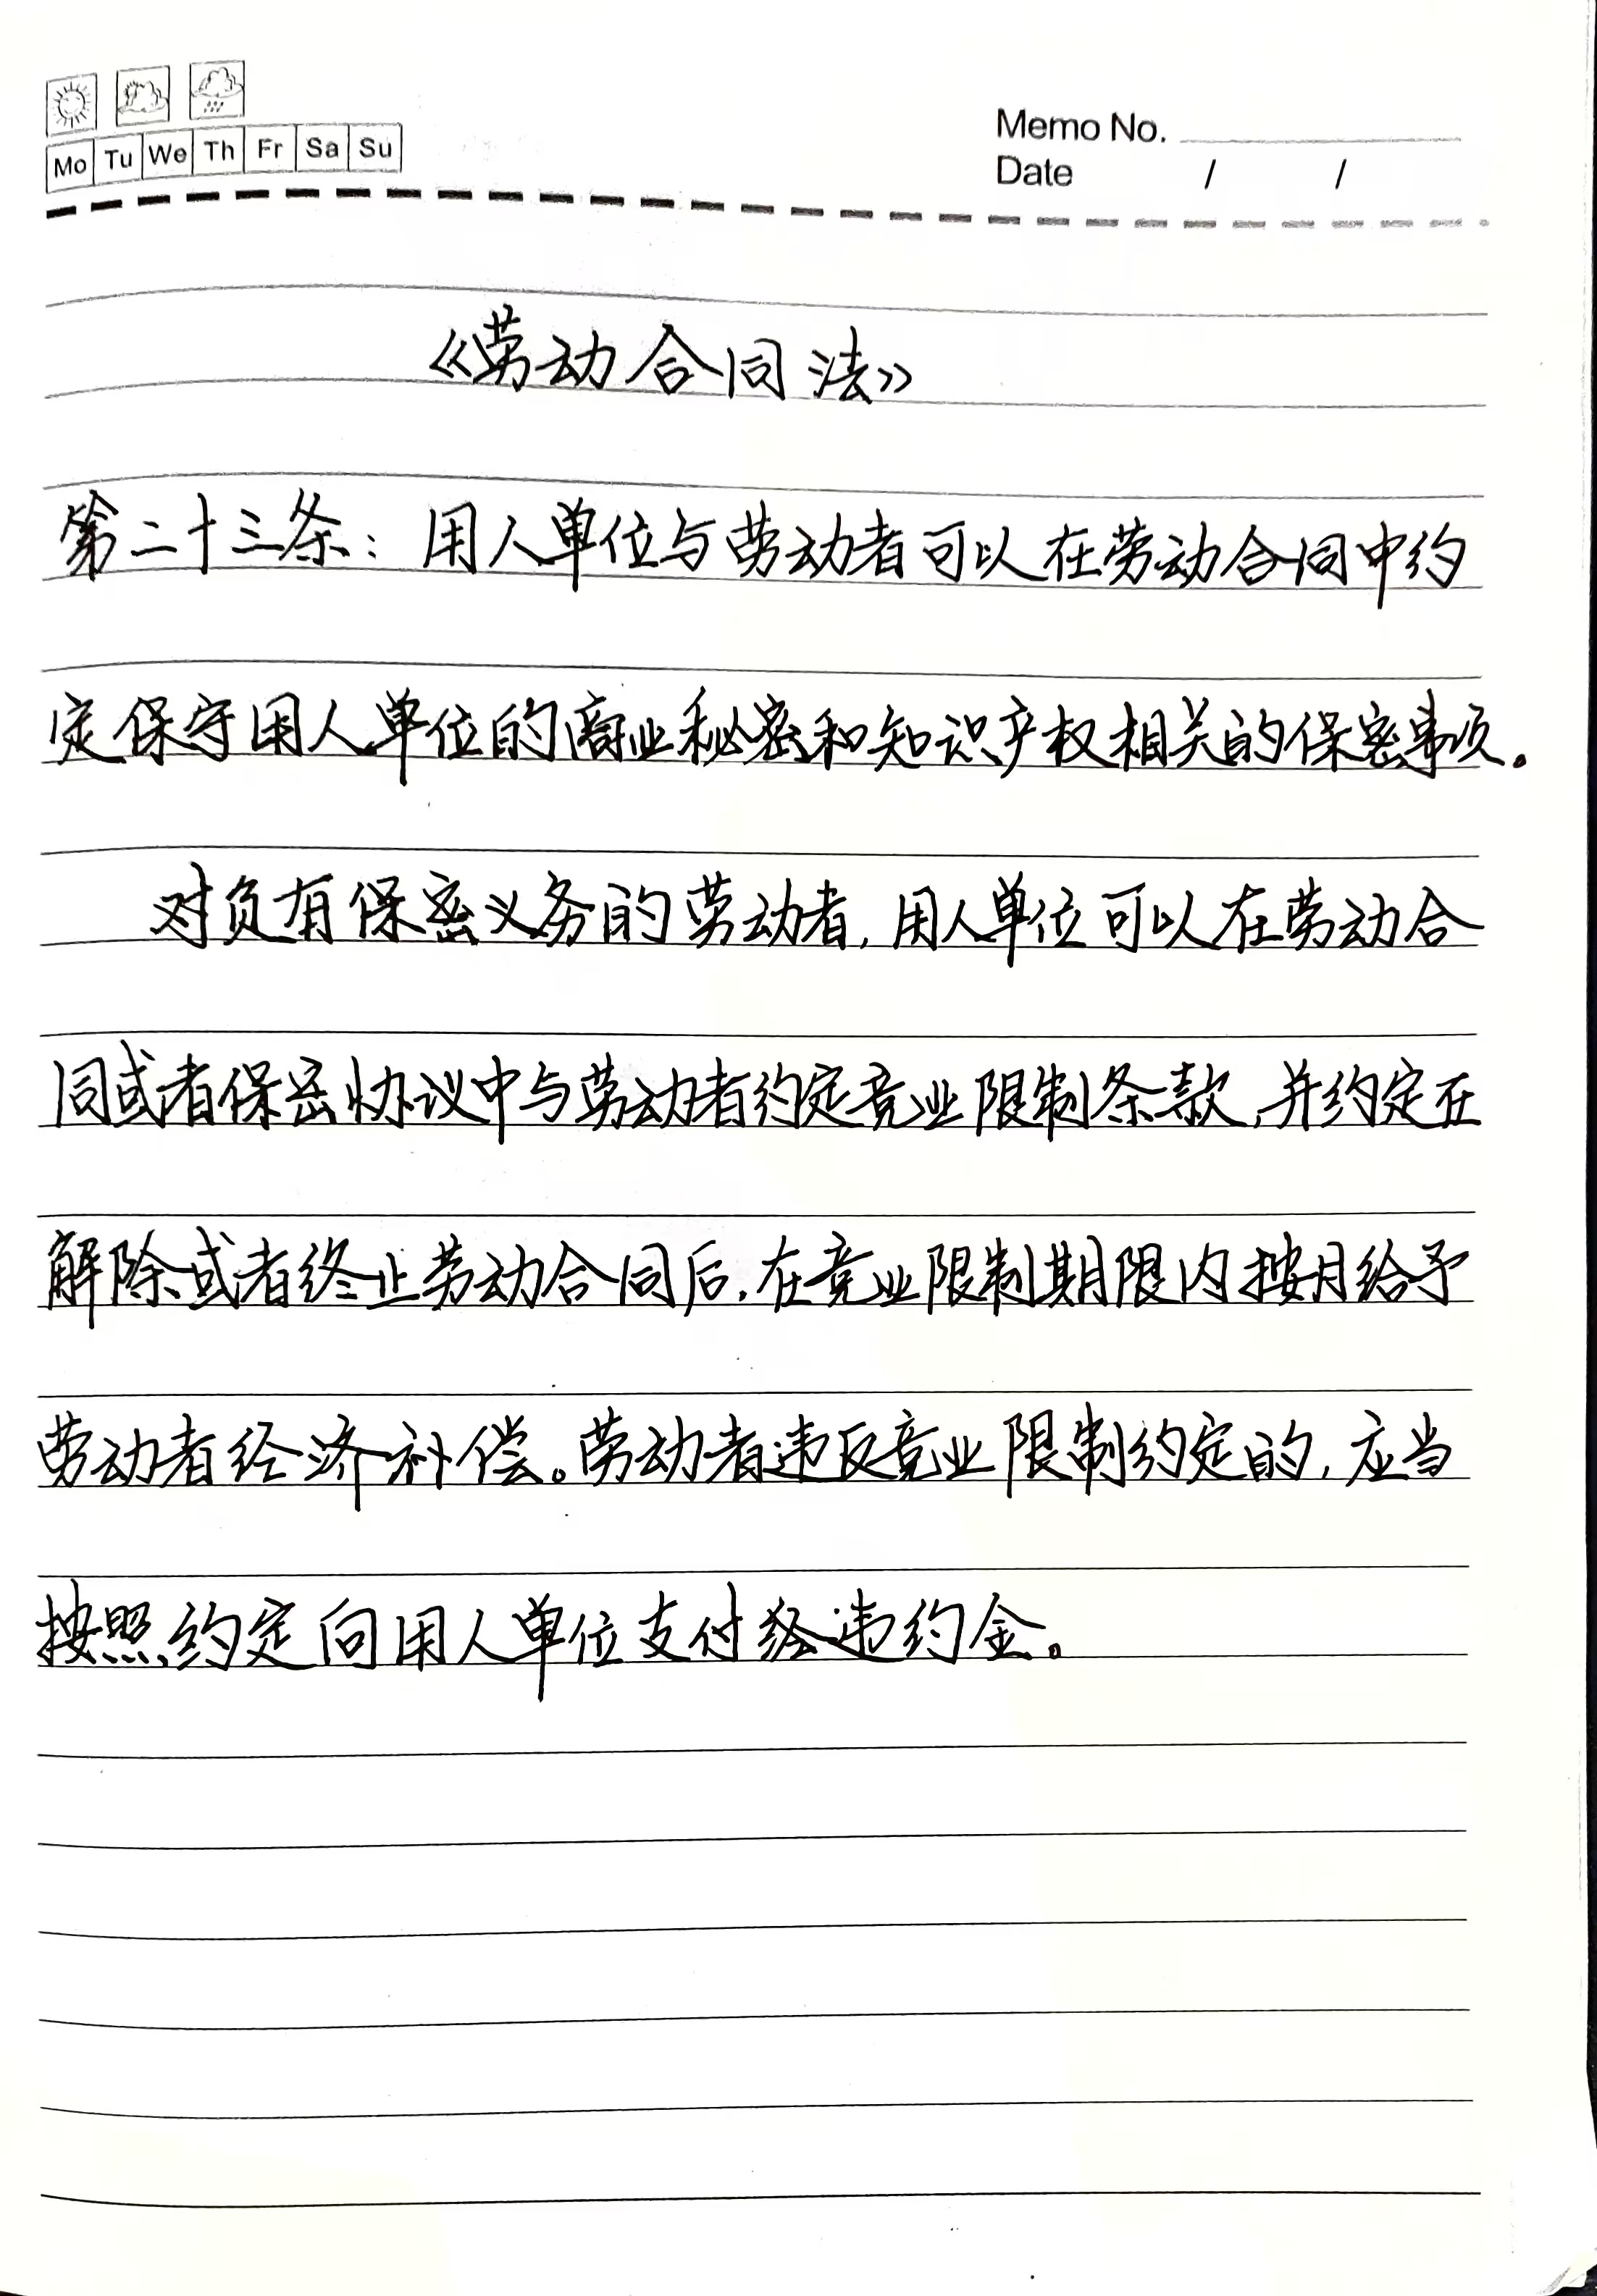 Mo Tu We Th Fr Sa Su
Memo No.
Date / /
《劳动合同法》
第二十三条：用人单位与劳动者可以在劳动合同中约
定保守用人单位的商业秘密和知识产权相关的保密事项。
对负有保密义务的劳动者，用人单位可以在劳动合
同或者保密协议中与劳动者约定竞业限制条款，并约定在
解除或者终止劳动合同后，在竞业限制期限内按月给予
劳动者经济补偿。劳动者违反竞业限制约定的，应当
按照约定向用人单位支付违约金。